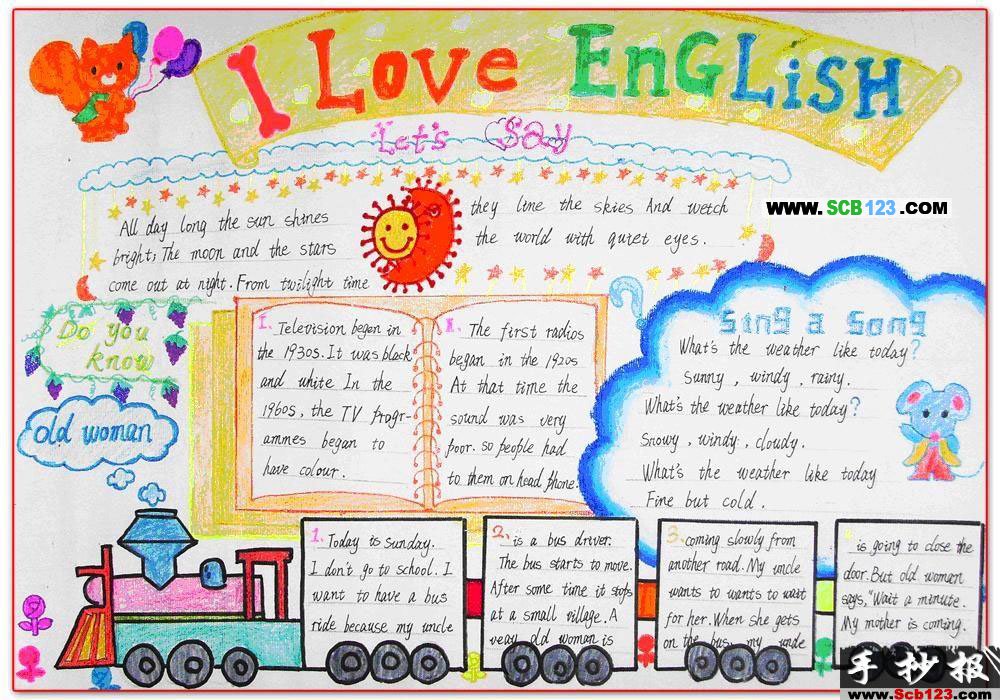 I Love EnGLiSH
Let's say
All day long the sun shines
bright; The moon and the stars
come out at night. From twilight time
they line the skies And wetch
the world with quiet eyes.
www.SCB123.COM
Do you
know
I. Television began in
the 1930s. It was black
and white In the
1960s, the TV progr-
ammes began to
have colour.
II. The first radios
began in the 1920s
At that time the
sound was very
poor. so people had
to them on head phone.
Sing a Song
What's the weather like today?
Sunny, windy, rainy.
What's the weather like today?
Snowy, windy, cloudy.
What's the weather like today
Fine but cold.
old woman
1. Today is Sunday.
I don't go to school. I
want to have a bus
ride because my uncle
2. is a bus driver.
The bus starts to move.
After some time it stops
at a small village. A
veay old woman is
3. coming slowly from
another road. My uncle
wants to wants to wait
for her. When she gets
on the bus, my uncle
is going to close the
door. But old woman
says, "Wait a minute.
My mother is coming.
手抄报
www.Scb123.com